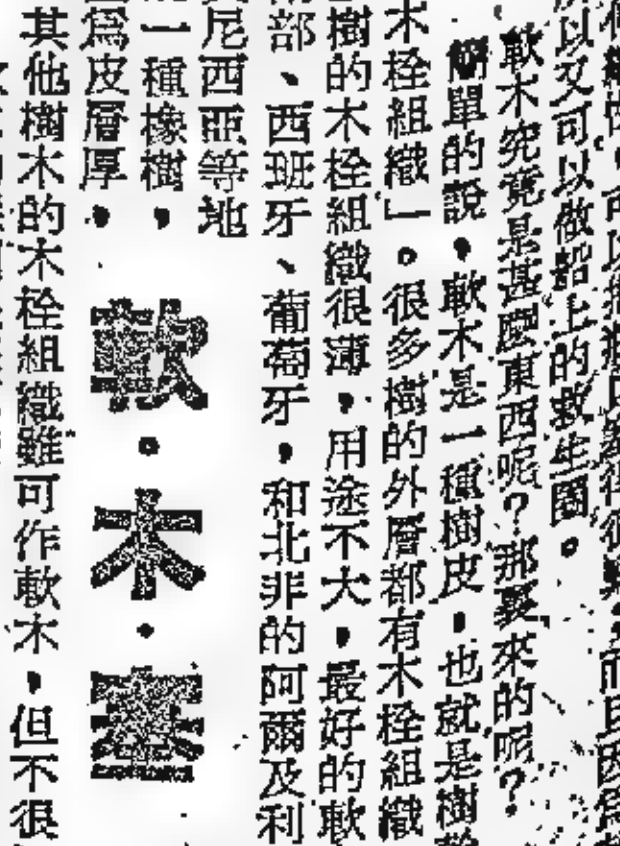 所以又可以做船上的救生圈。
軟木究竟是甚麼東西呢？那裏來的呢？
簡單的說，軟木是一種樹皮，也就是樹
木栓組織」。很多樹的外層都有木栓組織
樹的木栓組織很薄，用途不大，最好的軟
部、西班牙、葡萄牙，和北非的阿爾及利
尼西亞等地
一種橡樹，
爲皮層厚，
軟・木・塞
其他樹木的木栓組織雖可作軟木，但不很